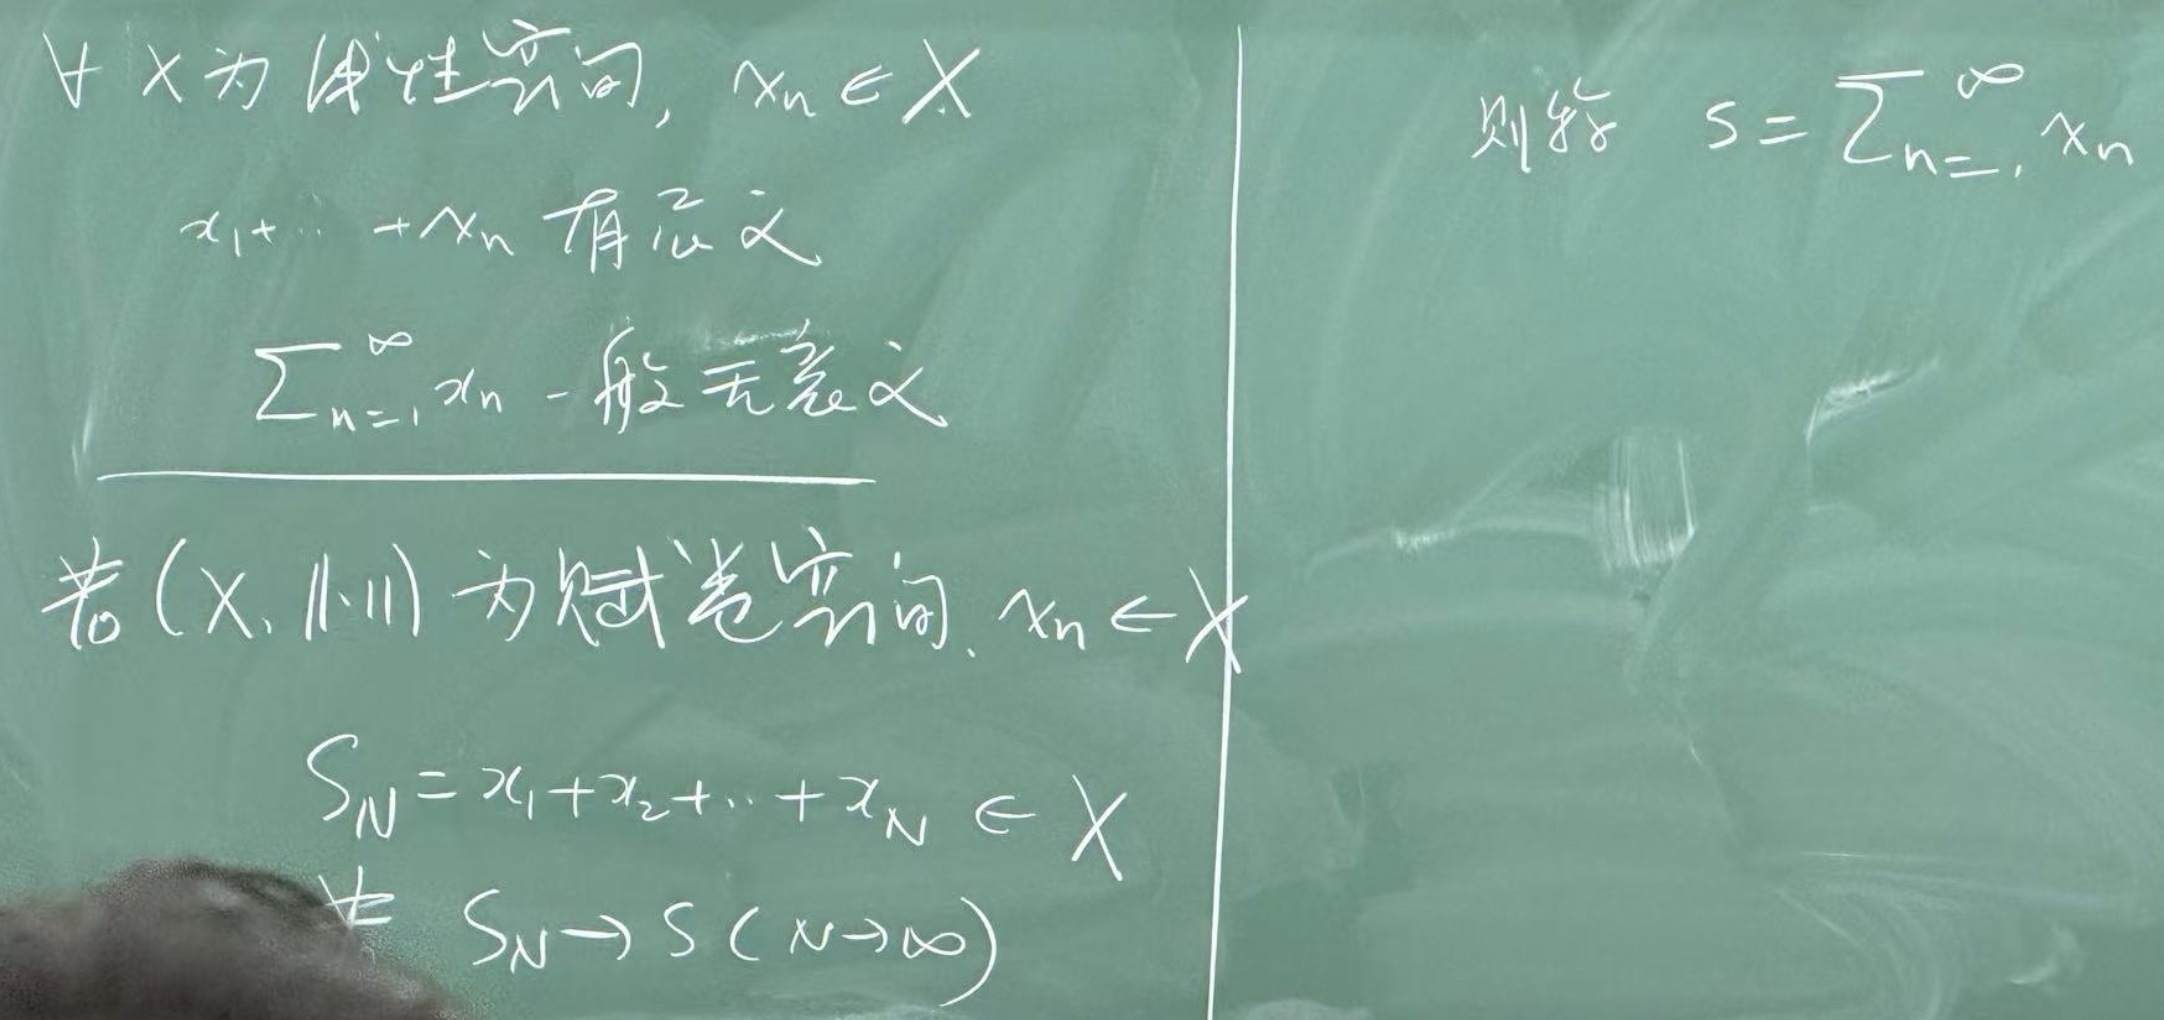 ∀ X为线性空间, xₙ ∈ X
x₁+⋯+xₙ 有意义
∑ₙ₌₁^∞ xₙ 一般无意义
若(X, ‖·‖)为赋范空间, xₙ ∈ X
S_N = x₁+x₂+⋯+x_N ∈ X
若 S_N → S (N→∞)
则称 S = ∑ₙ₌₁^∞ xₙ